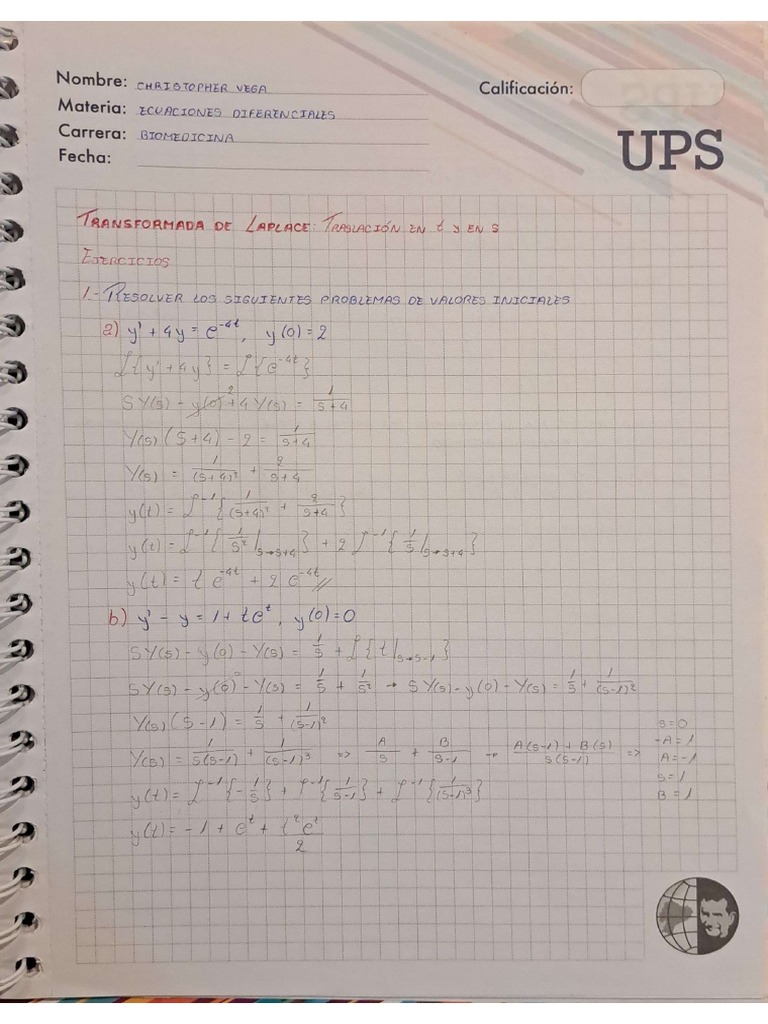 Nombre: CHRISTOPHER VEGA
Calificación:
Materia: ECUACIONES DIFERENCIALES
Carrera: BIOMEDICINA
Fecha:
UPS
TRANSFORMADA DE LAPLACE: TRASLACIÓN EN t y EN S
EJERCICIOS
1.- RESOLVER LOS SIGUIENTES PROBLEMAS DE VALORES INICIALES
a) y' + 4y = e^{-4t}, y(0) = 2
ℒ{y' + 4y} = ℒ{e^{-4t}}
SY(s) - y(0)^2 + 4Y(s) = 1/(s+4)
Y(s)(s+4) - 2 = 1/(s+4)
Y(s) = 1/(s+4)² + 2/(s+4)
y(t) = ℒ⁻¹{1/(s+4)² + 2/(s+4)}
y(t) = ℒ⁻¹{1/s² |s→s+4} + 2ℒ⁻¹{1/s |s→s+4}
y(t) = t e^{-4t} + 2 e^{-4t} //
b) y' - y = 1 + te^t, y(0) = 0
SY(s) - y(0) - Y(s) = 1/s + ℒ{t |s→s-1}
SY(s) - y(0)^0 - Y(s) = 1/s + 1/s² → SY(s) - y(0) - Y(s) = 1/s + 1/(s-1)²
Y(s)(s-1) = 1/s + 1/(s-1)²
Y(s) = 1/(s(s-1)) + 1/(s-1)³ => A/s + B/(s-1) → (A(s-1) + B(s))/(s(s-1)) =>
s=0
-A = 1
A = -1
s = 1
B = 1
y(t) = ℒ⁻¹{-1/s} + ℒ⁻¹{1/(s-1)} + ℒ⁻¹{1/(s-1)³}
y(t) = -1 + e^t + t²e^t/2